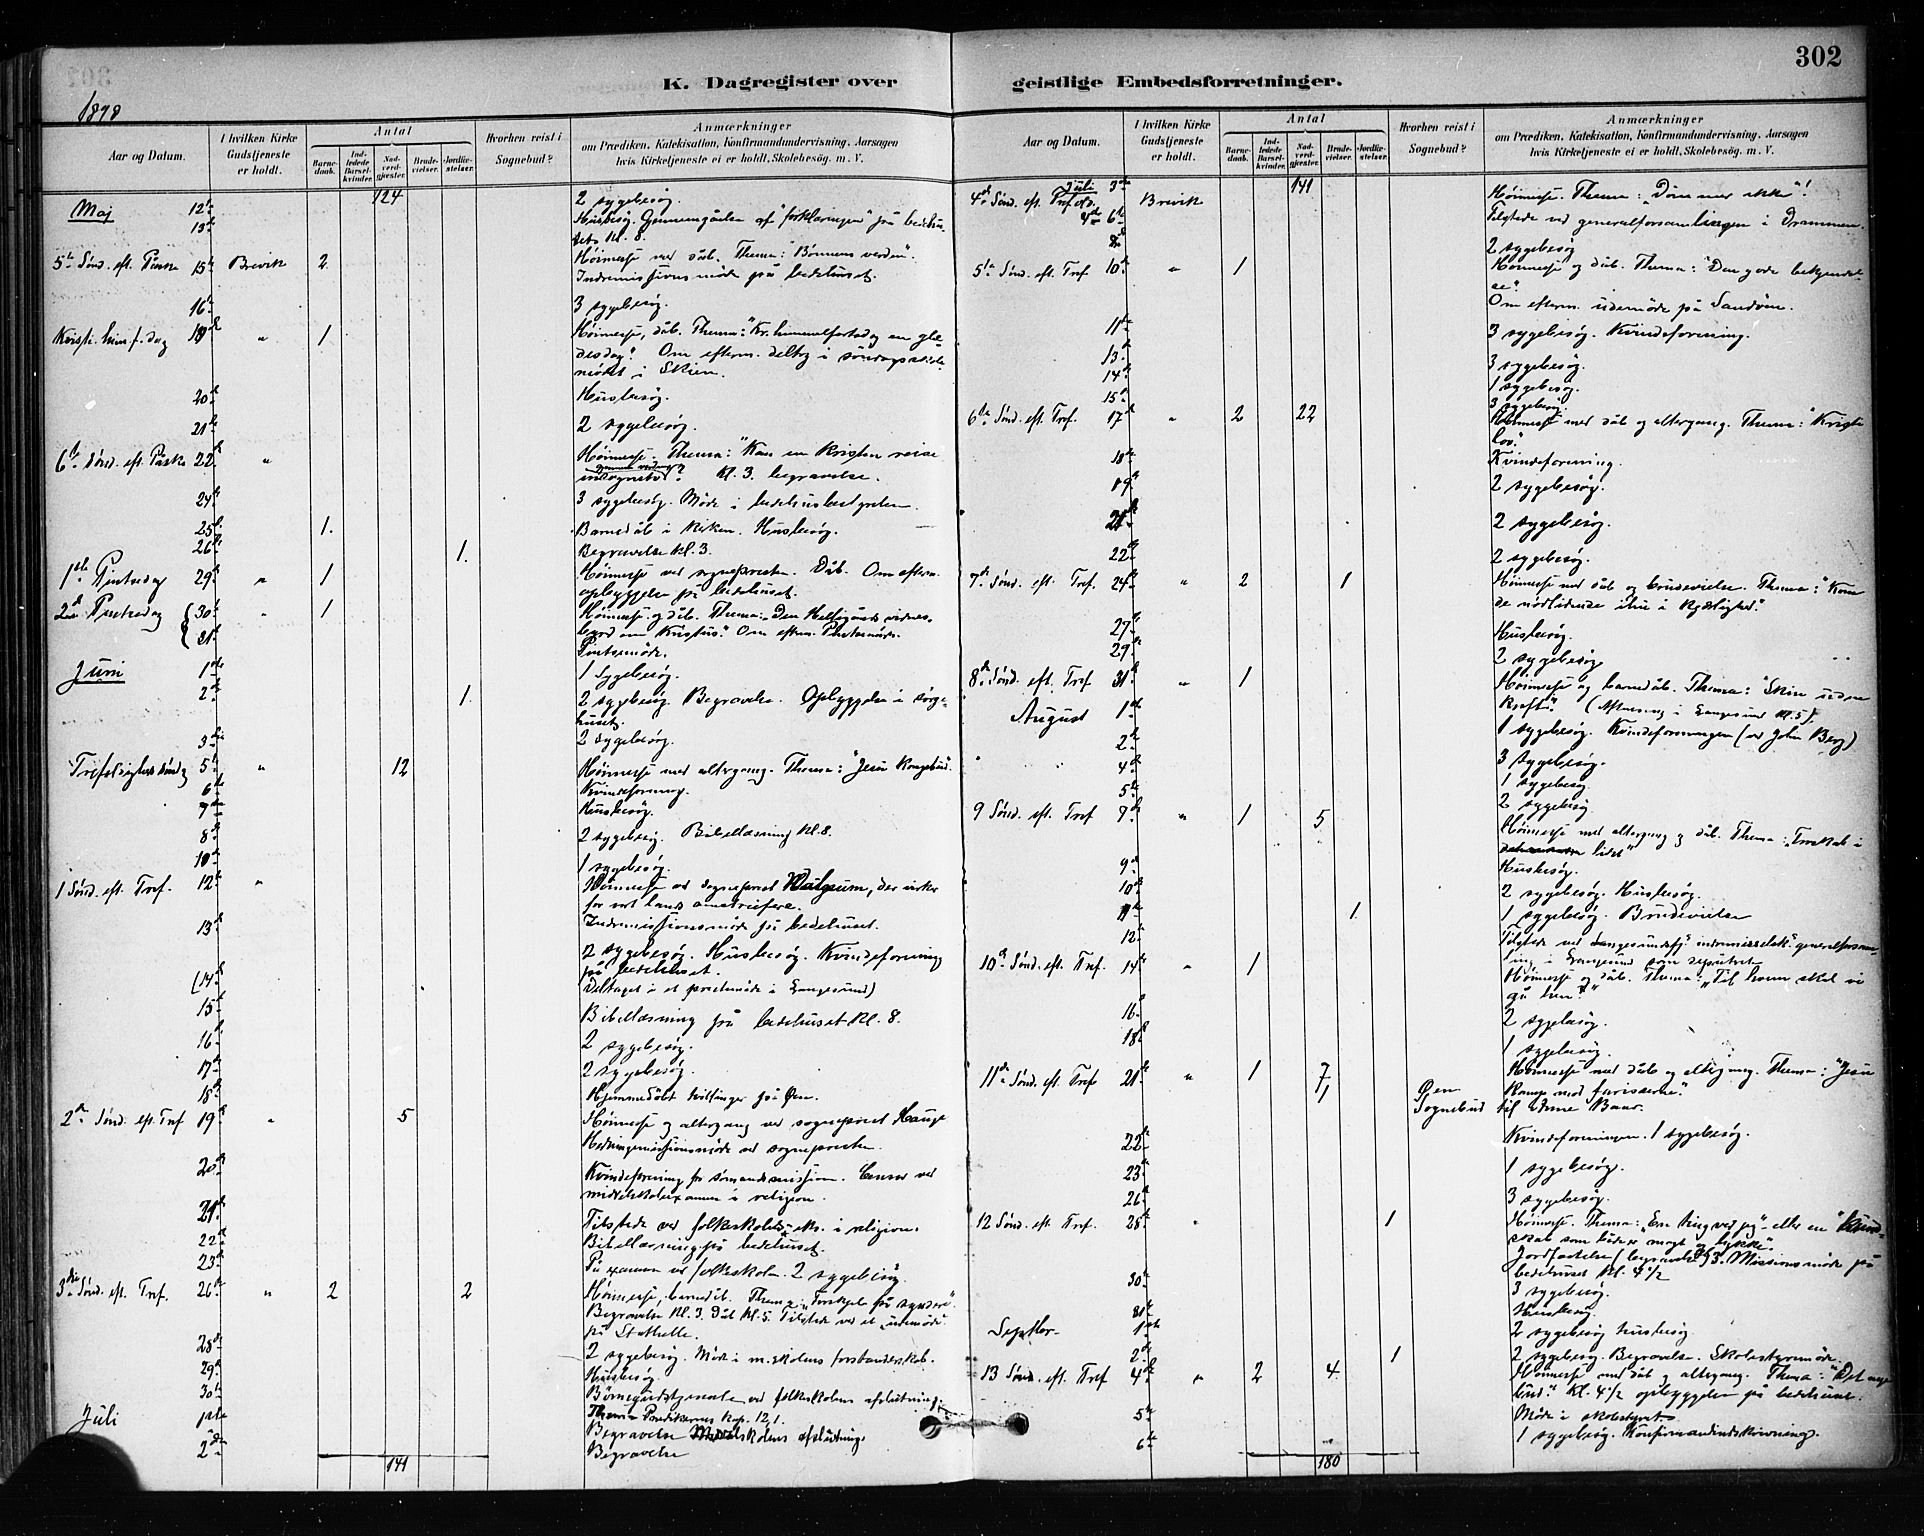 302
K. Dagregister over geistlige Embedsforretninger.
1898
Aar og Datum.
I hvilken Kirke Gudstjeneste er holdt.
Antal
Barnedaab.
Indledede Barselkvinder.
Nadverdgjæster.
Brudevielser.
Jordfæstelser.
Hvorhen reist i Sognebud?
Anmærkninger
om Prædiken, Katekisation, Konfirmandundervisning, Aarsagen
hvis Kirketjeneste ei er holdt, Skolebesög m. V.
124
Maj 12te 2 sygebesøg.
13de Husbesøg. Gjennemgåelse af "forklaringen" på bedehu-
set kl. 8.
5te Sønd. eft. Påske 15de Brevik 2 Høimesse med dåb. Thema: "Bønnens verden".
Indremissionsmøde på bedehuset.
16de 3 sygebesøg.
Kristi himf. dag 19de " 1. Høimesse, dåb. Thema: "Kr. himmelfartsdag en glæ-
desdag". Om efterm. deltog i søndagsskole-
mødet i Skien.
20de Husbesøg.
21de 2 sygebesøg.
6te Sønd. eft. Påske 22de " Høimesse. Thema: "Kan en kristen reise
inkognito gjennem verden"? Kl. 3. begravelse.
24de 3 sygebesøg. Møde i bedehusbestyrelsen.
25de 1. Barnedåb i kirken. Husbesøg.
26de 1. Begravelse kl. 3.
1ste Pintsedag 29de " 1 Høimesse ved sognepresten. Dåb. Om efterm.
opbyggelse på bedehuset.
2den Pintsedag 30te " 1 Høimesse og dåb. Thema: "Den Helligånds vidnes-
byrd om Kristus". Om efterm. Pintsemøde.
31te Pintsemøde.
Juni 1ste 1 sygebesøg.
2den 1. 2 sygebesøg. Begravelse. Opbyggelse i sørge-
huset.
3die 2 sygebesøg.
Trefoldighedssøndag 5te " 12 Høimesse med altergang. Thema: "Jesu kongebud".
6te Kvindeforening.
7de Husbesøg.
8de 2 sygebesøg. Bibellæsning kl. 8.
10de 1 sygebesøg.
1 Sønd. eft. Tref. 12te " Høimesse ved sogneprest Walnum, der virker
for vort lands
Indremissionsmøde på bedehuset.
13de 2 sygebesøg. Husbesøg. Kvindeforening
på bedehuset.
(14de Deltaget i et prestemøde i Langesund)
15de Bibellæsning på bedehuset kl. 8.
16de 2 sygebesøg.
17de 2 sygebesøg.
18de Hjemmedøbt tvillinger på Øen.
2den Sønd. eft. Tref 19de " 5 Høimesse og altergang ved sogneprest Hauge
Hedningemissionsmøde ved sognepresten.
20de Kvindeforening for sømandsmission. Censor ved
middelskoleexamen i religion.
21de Tilstede ved folkeskolens eks. i religion.
22de Bibellæsning på bedehuset.
23de På examen ved folkeskolen. 2 sygebesøg.
3die Sønd. eft. Tref. 26de " 2 2 Høimesse, barnedåb. Thema: "Forskjel på syndere".
Begravelse kl. 3. Dåb kl. 5. Tilstede ved et udemøde
på Stathelle.
28de 2 sygebesøg. Møde i m.skolens forstanderskab.
29de Husbesøg.
30te Børnegudstjeneste ved folkeskolens afslutning.
Thema Prædikerens kap. 12,1.
Juli 1ste Begravelse Middelskolens afslutning.
2den Begravelse
141
141
4de Sønd. eft. Tref. Juli 3die Brevik Høimesse. Thema: "Døm mer ikke"!
4de 6te Tilstede ved generalforsamlingen i Drammen.
2 sygebesøg
5te Sønd. eft. Tref 10de " 1 Høimesse og dåb. Thema: "Den gode bekjendel-
se".
Om efterm. udemøde på Sandøen.
11te 3 sygebesøg. Kvindeforening.
13de 3 sygebesøg.
14de 1 sygebesøg.
15de 3 sygebesøg.
6te Sønd. eft. Tref. 17de " 2 22 Høimesse med dåb og altergang. Thema: "Kristi
lov".
18de Kvindeforening.
19de 2 sygebesøg.
21de 2 sygebesøg.
22de 2 sygebesøg.
7de Sønd. eft. Tref. 24de " 2 1 Høimesse med dåb og brudevielse. Thema: "Kom
de nødlidende ihu i kjærlighed".
27de Husbesøg.
29de 2 sygebesøg
8de Sønd. eft. Tref 31te " 1 Høimesse og barnedåb. Thema: "Skin uden
kraft". (Aftensang i Langesund kl. 5)
August 1ste 1 sygebesøg. Kvindeforeningen (ved John Berg)
2den 3 sygebesøg.
4de 1 sygebesøg
5te 2 sygebesøg
9 Sønd. eft. Tref 7de " 1 5 Høimesse med altergang og dåb. Thema: "Troskab i
lidet"
9de Husbesøg.
10de 2 sygebesøg. Husbesøg.
11te 1 1 sygebesøg. Brudevielse
12te Tilstede ved Langesundsfj. indremisselsk. generalforsam-
ling i Langesund som deputeret.
10de Sønd. eft. Tref. 14de " 1 Høimesse og dåb. Thema: "Til hvem skal vi
gå hen?"
16de 2 sygebesøg.
18de 1 sygebesøg.
11te Sønd. eft Tref 21de " 1 7 Høimesse med dåb og altergang. Thema: "Jesu
kamp med farisæerne".
1 Øen Sognebud til Anne Baar.
22de Kvindeforeningen. 1 sygebesøg.
23de 1 sygebesøg.
26de 3 sygebesøg.
12 Sønd. eft Tref. 28de " 1 Høimesse. Thema: "En ting ved jeg" eller en "kund-
skab som bærer magt og lykke".
Jordfæstelse (begravelse) 3. Missionsmøde på
bedehuset kl. 4 1/2
30te 3 sygebesøg.
31te Husbesøg.
Septbr. 1ste 2 sygebesøg husbesøg.
2den 1 2 sygebesøg. Begravelse. Skolestyremøde.
13 Sønd. eft. Tref 4de " 2 4 Høimesse med dåb og altergang. Thema: "Det nye
bud". Kl. 4 1/2 opbyggelse på bedehuset.
5te Møde i skolestyret
6te 1 sygebesøg. Konfirmandindskrivning.
180